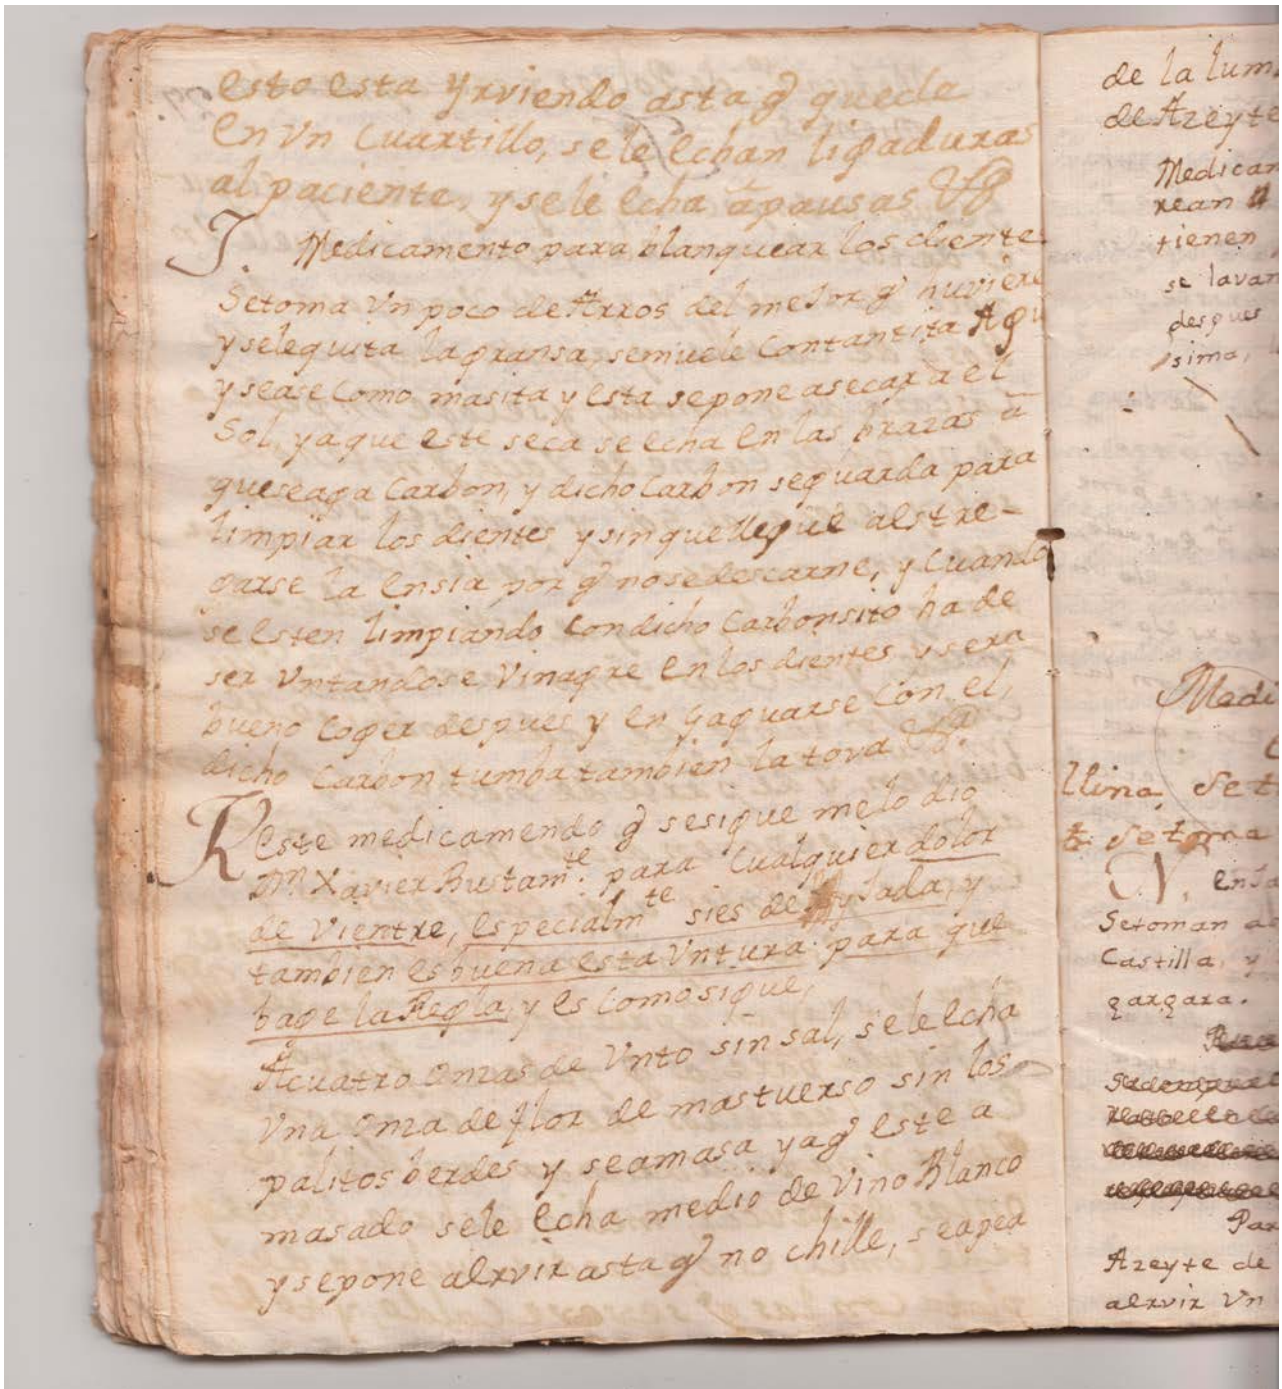 esto esta yrviendo asta q̃ queda
en Vn Cuartillo, se le echan ligaduras
al paciente, y sele echa a pausas
J. Medicamento para blanquear los diente
Setoma Vn poco de Arros del meJor q̃ nuviere
y selequita lagransa, semuele Contantita Agu
y sease como masita y esta sepone asecar a el
Sol, yaque este seca se echa en las brazas a
queseaga Carbon, y dicho Carbon seguarda para
limpiar los dientes y sinque llegue alstre-
garse la ensia por q̃ nosedescarne, y Cuando
se esten limpiando Condicho Carbonsito ha de
ser Vntandose Vinagre en los dientes y sera
bueno Coger despues y en yaguarse Con el,
dicho Carbon tumba tambien la tova
R este medicamendo q̃ sesigue melo dio
Dn Xavier Bustamte. para Cualquier dolor
de Vientre, especialmte sies de y
tambien es buena esta Vntura para que
bage la Regla, y es Como sigue,
A cuatro onzas de Vnto sin sal, sele echa
Vna onza de flor de mastuerso sin los
palitos berdes y seamasa yaq̃ este a
masado sele echa medio de Vino Blanco
y sepone alrvir asta q̃ no chille, seapea
de la lum
de Azeyte
Medicam
rean
tienen
se lavan
despues
sima,
Medi
llina, Se t
Se toma
N. en
Setoman a
Castilla, y
gargara.
Par
Azeyte de
alrvir Vn